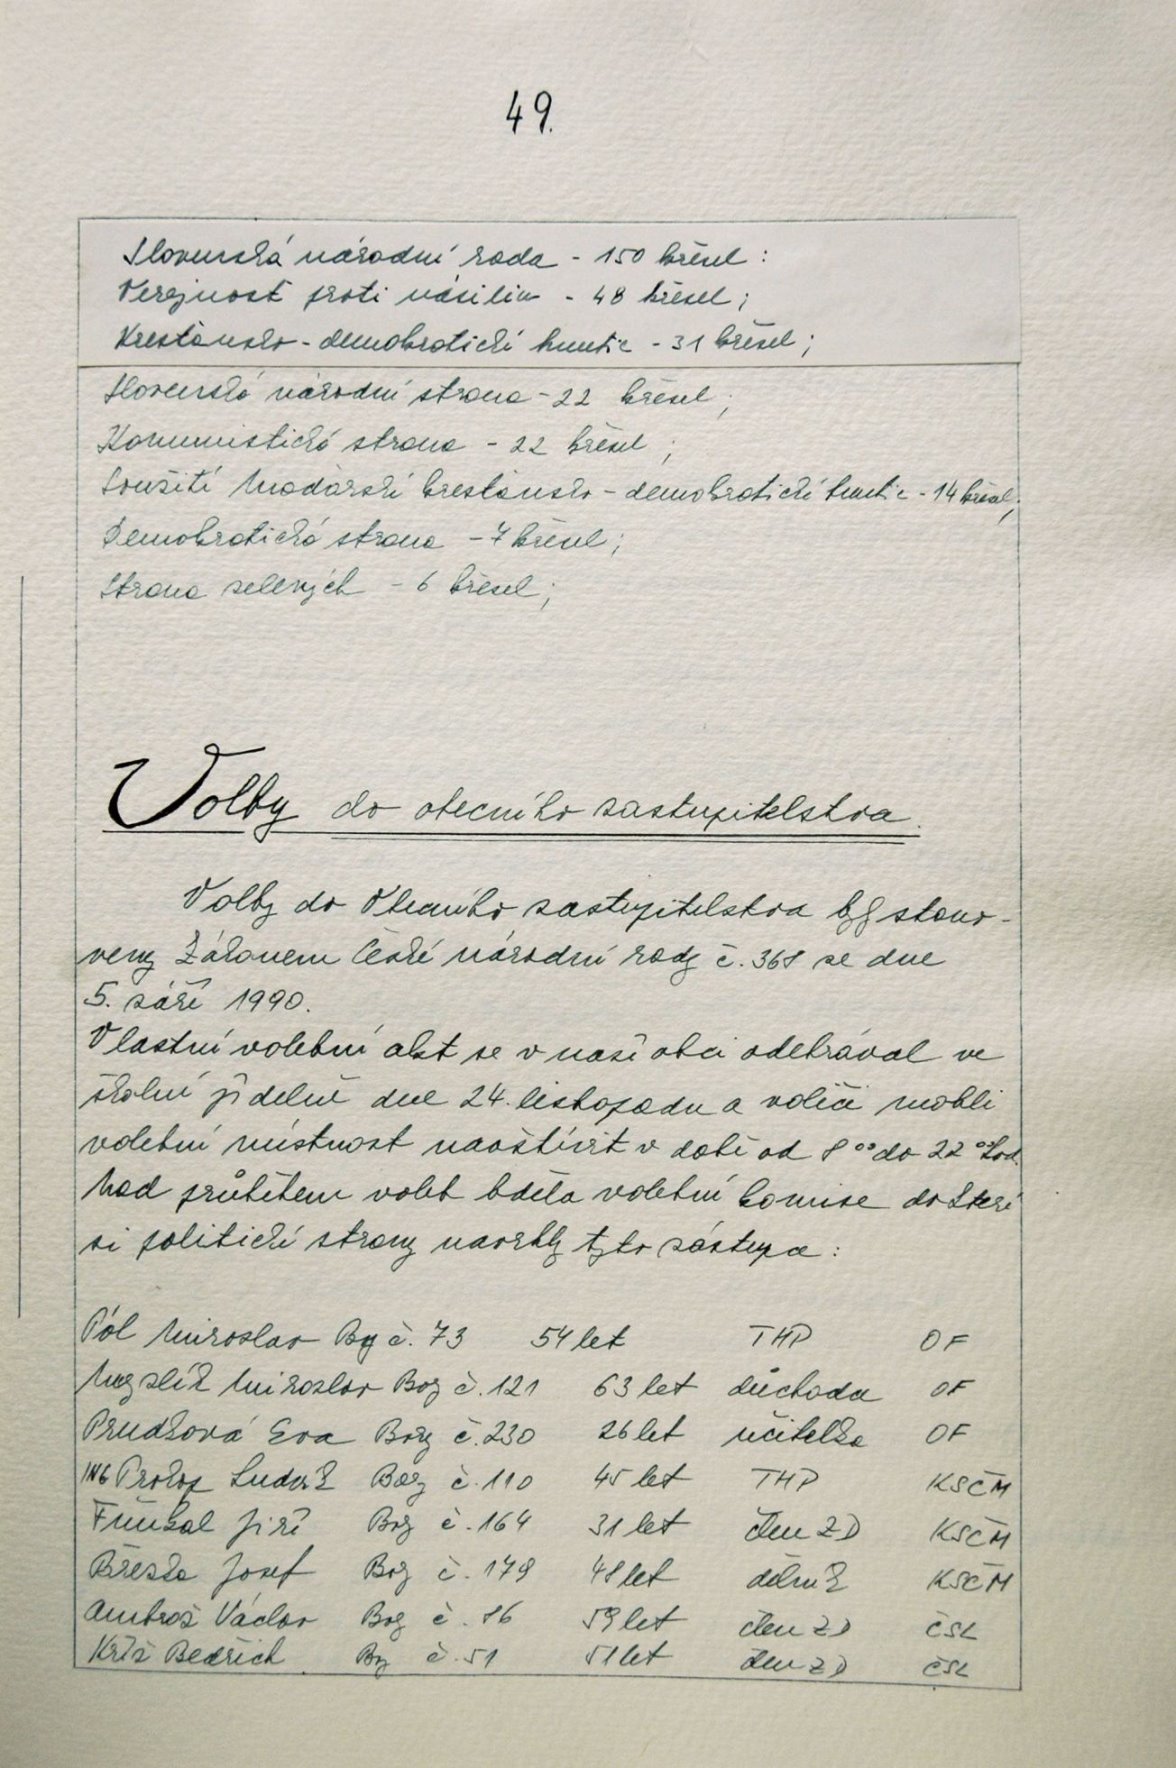 49.
Slovenská národní rada - 150 křesel :
Verejnost proti násiliu - 48 křesel ;
Krestánsko - demokratické hnutie - 31 křesel ;
Slovenská národní strana - 22 křesel ;
Komunistická strana - 22 křesel ;
Soužití Maďarské krestánsko - demokratické hnutie - 14 křesel ;
Demokratická strana - 7 křesel ;
Strana zelených - 6 křesel ;
Volby do obecního zastupitelstva.
Volby do Obecního zastupitelstva byly stano-
veny Zákonem České národní rady č. 368 ze dne
5. září 1990.
Vlastní volební akt se v naší obci odehrával ve
školní jídelně dne 24. listopadu a voliči mohli
volební místnost navštívit v době od 8 00 do 22 00 hod.
Nad průběhem voleb bděla volební komise do které
si politické strany navrhly tyto zástupce :
Pól Miroslav Bory č. 73 54 let THP OF
Miroslav Bory č. 121 63 let důchodce OF
Prudková Eva Bory č. 230 26 let učitelka OF
ING Prokop Luděk Bory č. 110 45 let THP KSČM
Jiří Bory č. 164 31 let člen ZD KSČM
Březka Josef Bory č. 179 48 let dělník KSČM
Ambrož Václav Bory č. 86 59 let člen ZD ČSL
Kříž Bedřich Bory č. 51 51 let člen ZD ČSL